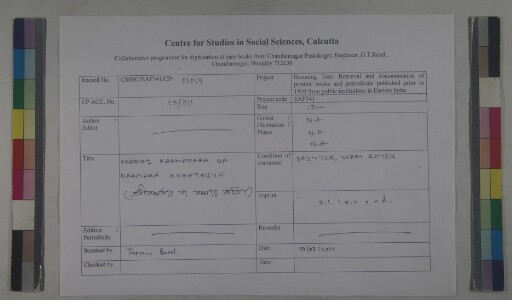 Centre for Studies in Social Sciences, Calcutta
Collaborative programme for digitization of rare books from Chandannagar Pustakagar, Baghazar, G.T.Road,
Chandannagar, Hooghly 712136
Record No. CSSSC/EAP341/CP/ 01019
Project Rescuing Text: Retrieval and documentation of
printed books and periodicals published prior to
1950 from public institutions in Eastern India.
CP ACC. No. 19/311
Project code EAP341
Size 18cm
Author /
Editor
Colour /
Illustration /
Plates
N.A
N.A
N.A
Title
BA
Condition of
document
BRITTLE, WORM EATEN
Imprint
s.l. : s.n., n.d.
Edition /
Periodicity
Remarks
Scanned by Tapan Barel
Date
Checked by
Date